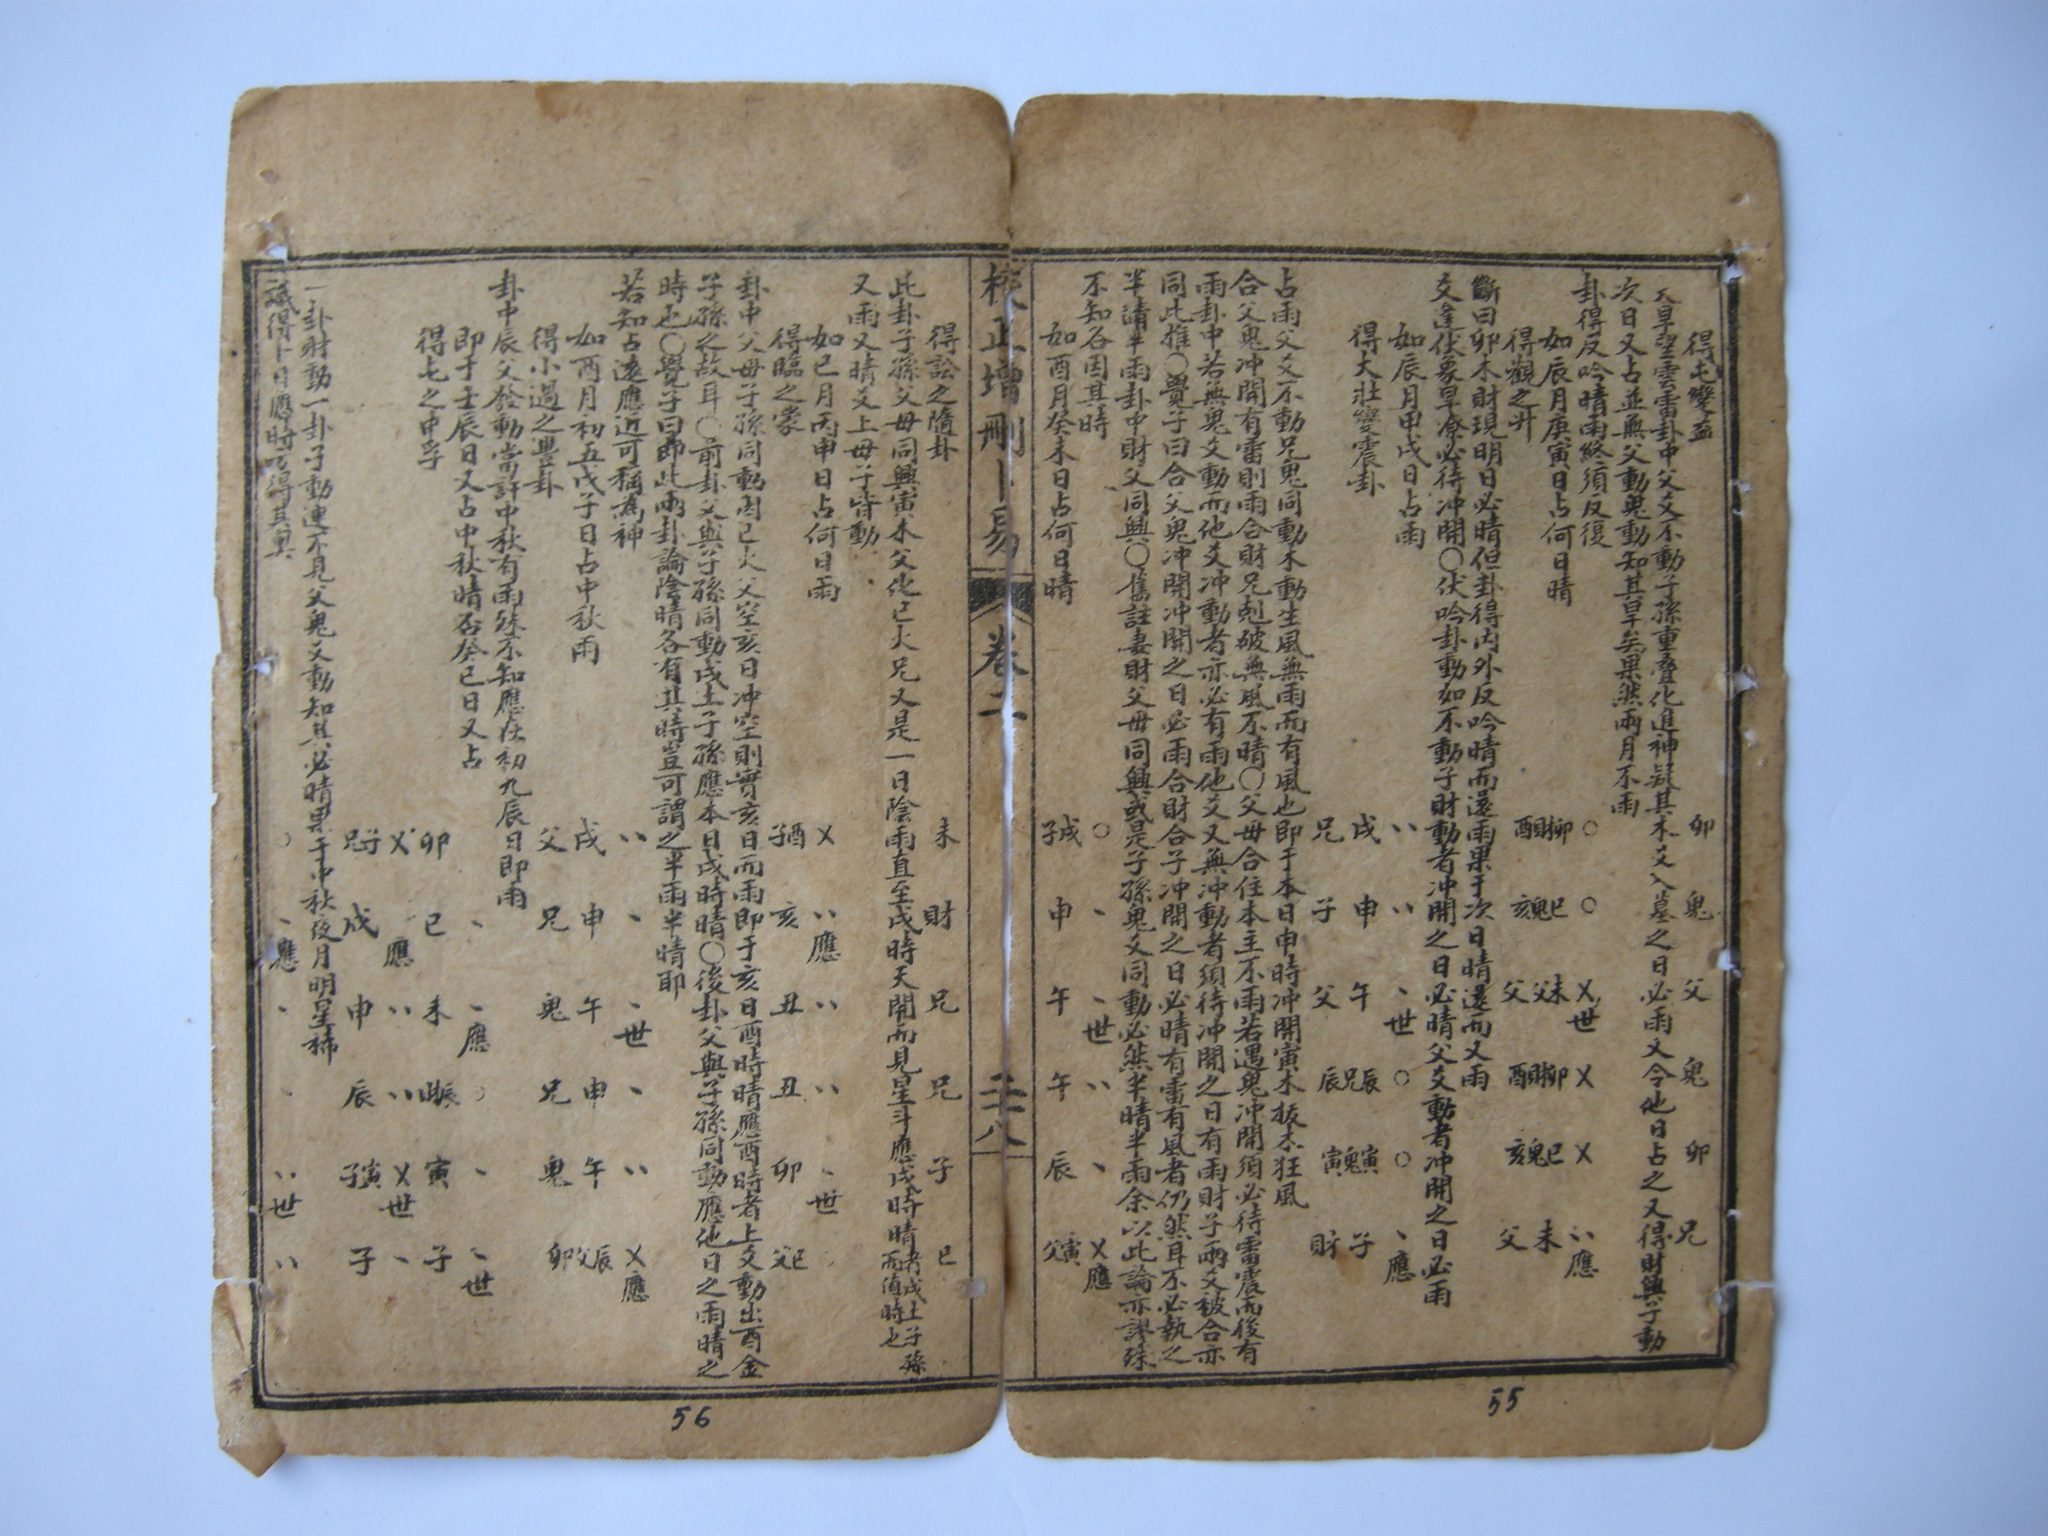 得屯變益
卯 鬼 父 鬼 卯 兄
天旱望雲雷卦中父爻不動子孫重疊化進神疑其木爻入墓之日必雨又令他日占之又得財興子動
次日又占並無父動鬼動知其旱矣果然兩月不雨
卦得反吟晴雨終須反復
如辰月庚寅日占何日晴
得觀之升
○ ○ ㄨ世 ㄨ ㄨ 〃應
財卯 鬼巳 父未 財卯 鬼巳 未
酉 亥 父 酉 亥 父
斷曰卯木財現明日必晴但卦得內外反吟晴而還雨果于次日晴還而又雨
爻逢伏象旱潦必待冲開○伏吟卦動如不動子財動者冲開之日必晴父爻動者冲開之日必雨
如辰月甲戌日占雨
得大壯變震卦
〃 〃 、世 ○ ○ 、應
戌 申 午 兄辰 鬼寅 子
兄 子 父 辰 寅 財
占雨父爻不動兄鬼同動木動生風無雨而有風也即于本日申時冲開寅木拔木狂風
合父鬼冲開有雷則雨合財兄尅破無風不晴○父母合住本主不雨若遇鬼冲開須必待雷震而後有
雨卦中若無鬼爻動而他爻冲動者亦必有雨他爻又無冲動者須待冲開之日有雨財子兩爻被合亦
同此推○覺子曰合父鬼冲開冲開之日必雨合財合子冲開之日必晴有雷有風者仍然耳不必執之
半晴半雨卦中財父同興○舊註妻財父母同興或是子孫鬼爻同動必然半晴半雨余以此論亦謬殊
不知各因其時
如酉月癸未日占何日晴
○ 、 、世 〃 、 ㄨ應
子戌 申 午 午 辰 父寅
校正增刪卜易 卷二 二十八
得訟之隨卦
未 財 兄 兄 子 巳
此卦子孫父母同興寅木父化巳火兄又是一日陰雨直至戌時天開而見星斗應戌時晴者戌土子孫而值時也
又雨又晴父上母子皆動
如巳月丙申日占何日雨
得臨之蒙
ㄨ 〃應 〃 〃 、世
子酉 亥 丑 丑 卯 父巳
卦中父母子孫同動因巳火父空亥日冲空則實亥日而雨即于亥日酉時晴應酉時者上爻動出酉金
子孫之故耳○前卦父與子孫同動戌土子孫應本日戌時晴○後卦父與子孫同動應他日之雨晴之
時也○覺子曰即此兩卦論陰晴各有其時豈可謂之半雨半晴耶
若知占遠應近可稱為神
如酉月初五戊子日占中秋雨
得小過之豐卦
〃 、 、世 、 〃 ㄨ應
戌 申 午 申 午 父辰
父 兄 鬼 兄 鬼 卯
卦中辰父發動當許中秋有雨殊不知應在初九辰日即雨
即于壬辰日又占中秋晴否癸巳日又占
得七之中孚
、 、應 ○ 、 、世
卯 巳 未 辰 寅 子
ㄨ 應 〃 〃 ㄨ世 、
戌 申 辰 子寅 子
一卦財動一卦子動連不見父鬼爻動知其必晴果于中秋後月明星稀
識得卜日應時方得其奧
○ 、應 、 、 〃世 〃
55
56